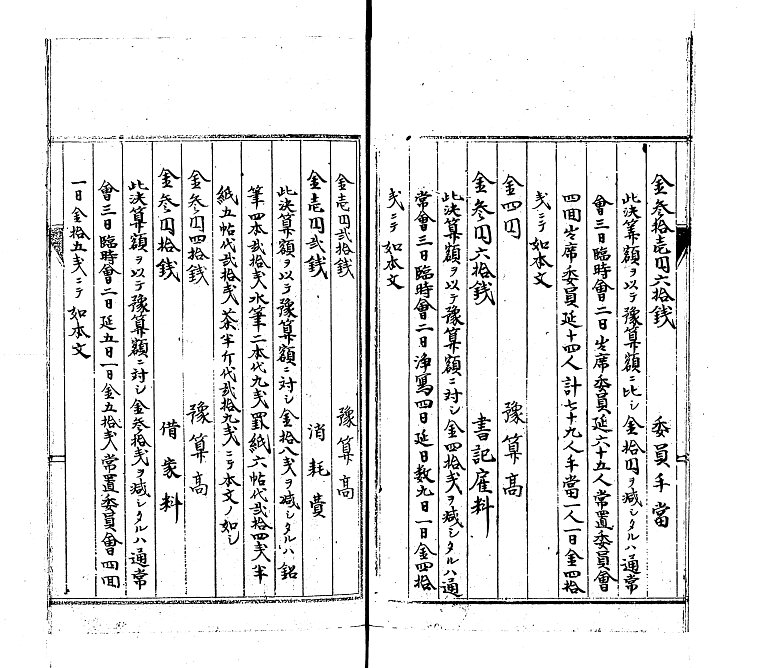 金参拾壱円六拾銭　委員手當
此決算額ヲ以テ豫算額ニ比シ金拾円ヲ減シタルハ通常
會三日臨時會二日出席委員延六十五人常置委員會
四回出席委員延十四人計七十九人手當一人一日金四拾
銭ニテ如本文
金四円　豫算高
金参円六拾銭　書記雇料
此決算額ヲ以テ豫算額ニ対シ金四拾銭ヲ減シタルハ通
常會三日臨時會二日浄寫四日延日数九日一日金四拾
銭ニテ如本文
金壱円弐拾銭　豫算高
金壱円弐銭　消耗費
此決算額ヲ以テ豫算額ニ対シ金拾八銭ヲ減シタルハ鉛
筆四本弐拾銭水筆二本代九銭罫紙六帖代弐拾四銭半
紙五帖代弐拾銭茶半斤代弐拾九銭ニテ本文ノ如シ
金参円四拾銭　豫算高
金参円拾銭　借家料
此決算額ヲ以テ豫算額ニ対シ金参拾銭ヲ減シタルハ通常
會三日臨時會二日延五日一日金五拾銭常置委員會四回
一日金拾五銭ニテ如本文